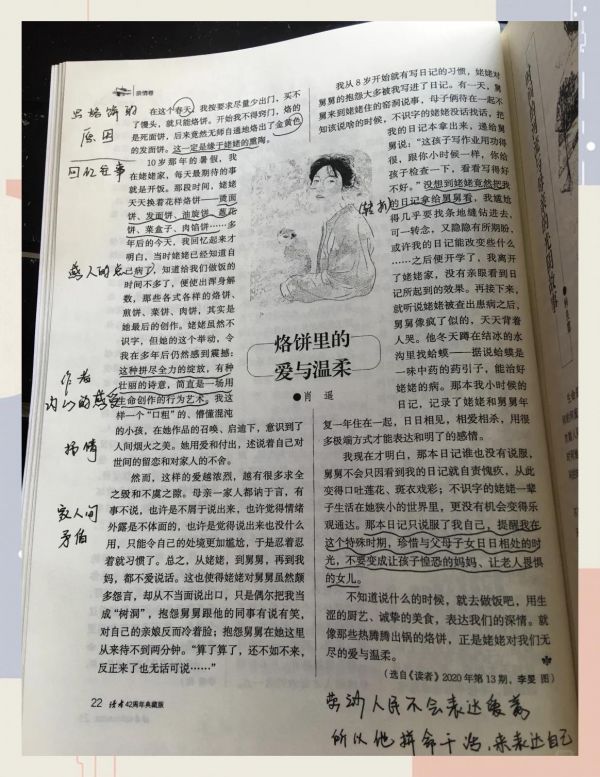 亲情卷
在这个春天，我按要求尽量少出门，买不
了馒头，就只能烙饼。开始我不得窍门，烙的
是死面饼，后来竟然无师自通地烙出了金黄色
的发面饼。这一定是缘于姥姥的熏陶。
10岁那年的暑假，我
在姥姥家，每天最期待的事
就是开饭。那段时间，姥姥
天天换着花样烙饼——烫面
饼、发面饼、油旋饼、葱花
饼、菜盒子、肉馅饼……多
年后的今天，我回忆起来才
明白，当时姥姥已经知道自
己病了，知道给我们做饭的
时间不多了，便使出浑身解
数，那些各式各样的烙饼、
煎饼、菜饼、肉饼，其实是
她最后的创作。姥姥虽然不
识字，但她的这个举动，令
我在多年后仍然感到震撼：
这种拼尽全力的绽放，有种
壮丽的诗意，简直是一场用
生命创作的行为艺术。我这
样一个“口粗”的、懵懂混沌
的小孩，在她作品的召唤、启迪下，意识到了
人间烟火之美。她用爱和付出，述说着自己对
世间的留恋和对家人的不舍。
然而，这样的爱越浓烈，越有很多求全
之毁和不虞之隙。母亲一家人都讷于言，有
事不说，也许是不屑于说出来，也许觉得情绪
外露是不体面的，也许是觉得说出来也没什么
用，只能令自己的处境更加尴尬，于是忍着忍
着就习惯了。总之，从姥姥，到舅舅，再到我
妈，都不爱说话。这也使得姥姥对舅舅虽然颇
多怨言，却从不当面说出口，只是偶尔把我当
成“树洞”，抱怨舅舅跟他的同事有说有笑，
对自己的亲娘反而冷着脸；抱怨舅舅在她这里
从来待不到两分钟。“算了算了，还不如不来，
反正来了也无话可说……”
22 读者42周年典藏版
我从8岁开始就有写日记的习惯，姥姥对
舅舅的抱怨大多被我写进了日记。有一天，舅
舅来到姥姥住的窑洞说事，母子俩待在一起不
知该说啥的时候，不识字的姥姥没话找话，把
我的日记本拿出来，递给舅
舅说：“这孩子写作业用功得
很，跟你小时候一样，你给
孩子检查一下，看看写得好
不好。”没想到姥姥竟然把我
的日记拿给舅舅看，我尴尬
得几乎要找条地缝钻进去，
可一转念，又隐隐有所期盼，
或许我的日记能改变些什么
……之后便开学了，我离开
了姥姥家，没有亲眼看到日
记所起到的效果。再接下来，
就听说姥姥被查出患病之后，
舅舅像疯了似的，天天背着
人哭。他冬天蹲在结冰的水
沟里找蛤蟆——据说蛤蟆是
一味中药的药引子，能治好
姥姥的病。那本我小时候的
日记，记录了姥姥和舅舅年
复一年住在一起，日日相见，相爱相杀，用很
多极端方式才能表达和明了的感情。
我现在才明白，那本日记谁也没有说服，
舅舅不会只因看到我的日记就自责愧疚，从此
变得口吐莲花、斑衣戏彩；不识字的姥姥一辈
子生活在她狭小的世界里，更没有机会变得乐
观通达。那本日记只说服了我自己，提醒我在
这个特殊时期，珍惜与父母子女日日相处的时
光，不要变成让孩子惶恐的妈妈、让老人畏惧
的女儿。
不知道说什么的时候，就去做饭吧，用生
涩的厨艺、诚挚的美食，表达我们的深情。就
像那些热腾腾出锅的烙饼，正是姥姥对我们无
尽的爱与温柔。
（选自《读者》2020年第13期，李旻 图）
烙饼里的
爱与温柔
●肖 遥
原因
回忆往事
作者
内心的感受
抒情
家人间
矛盾
劳动人民不会表达爱意
所以他拼命干活，来表达自己